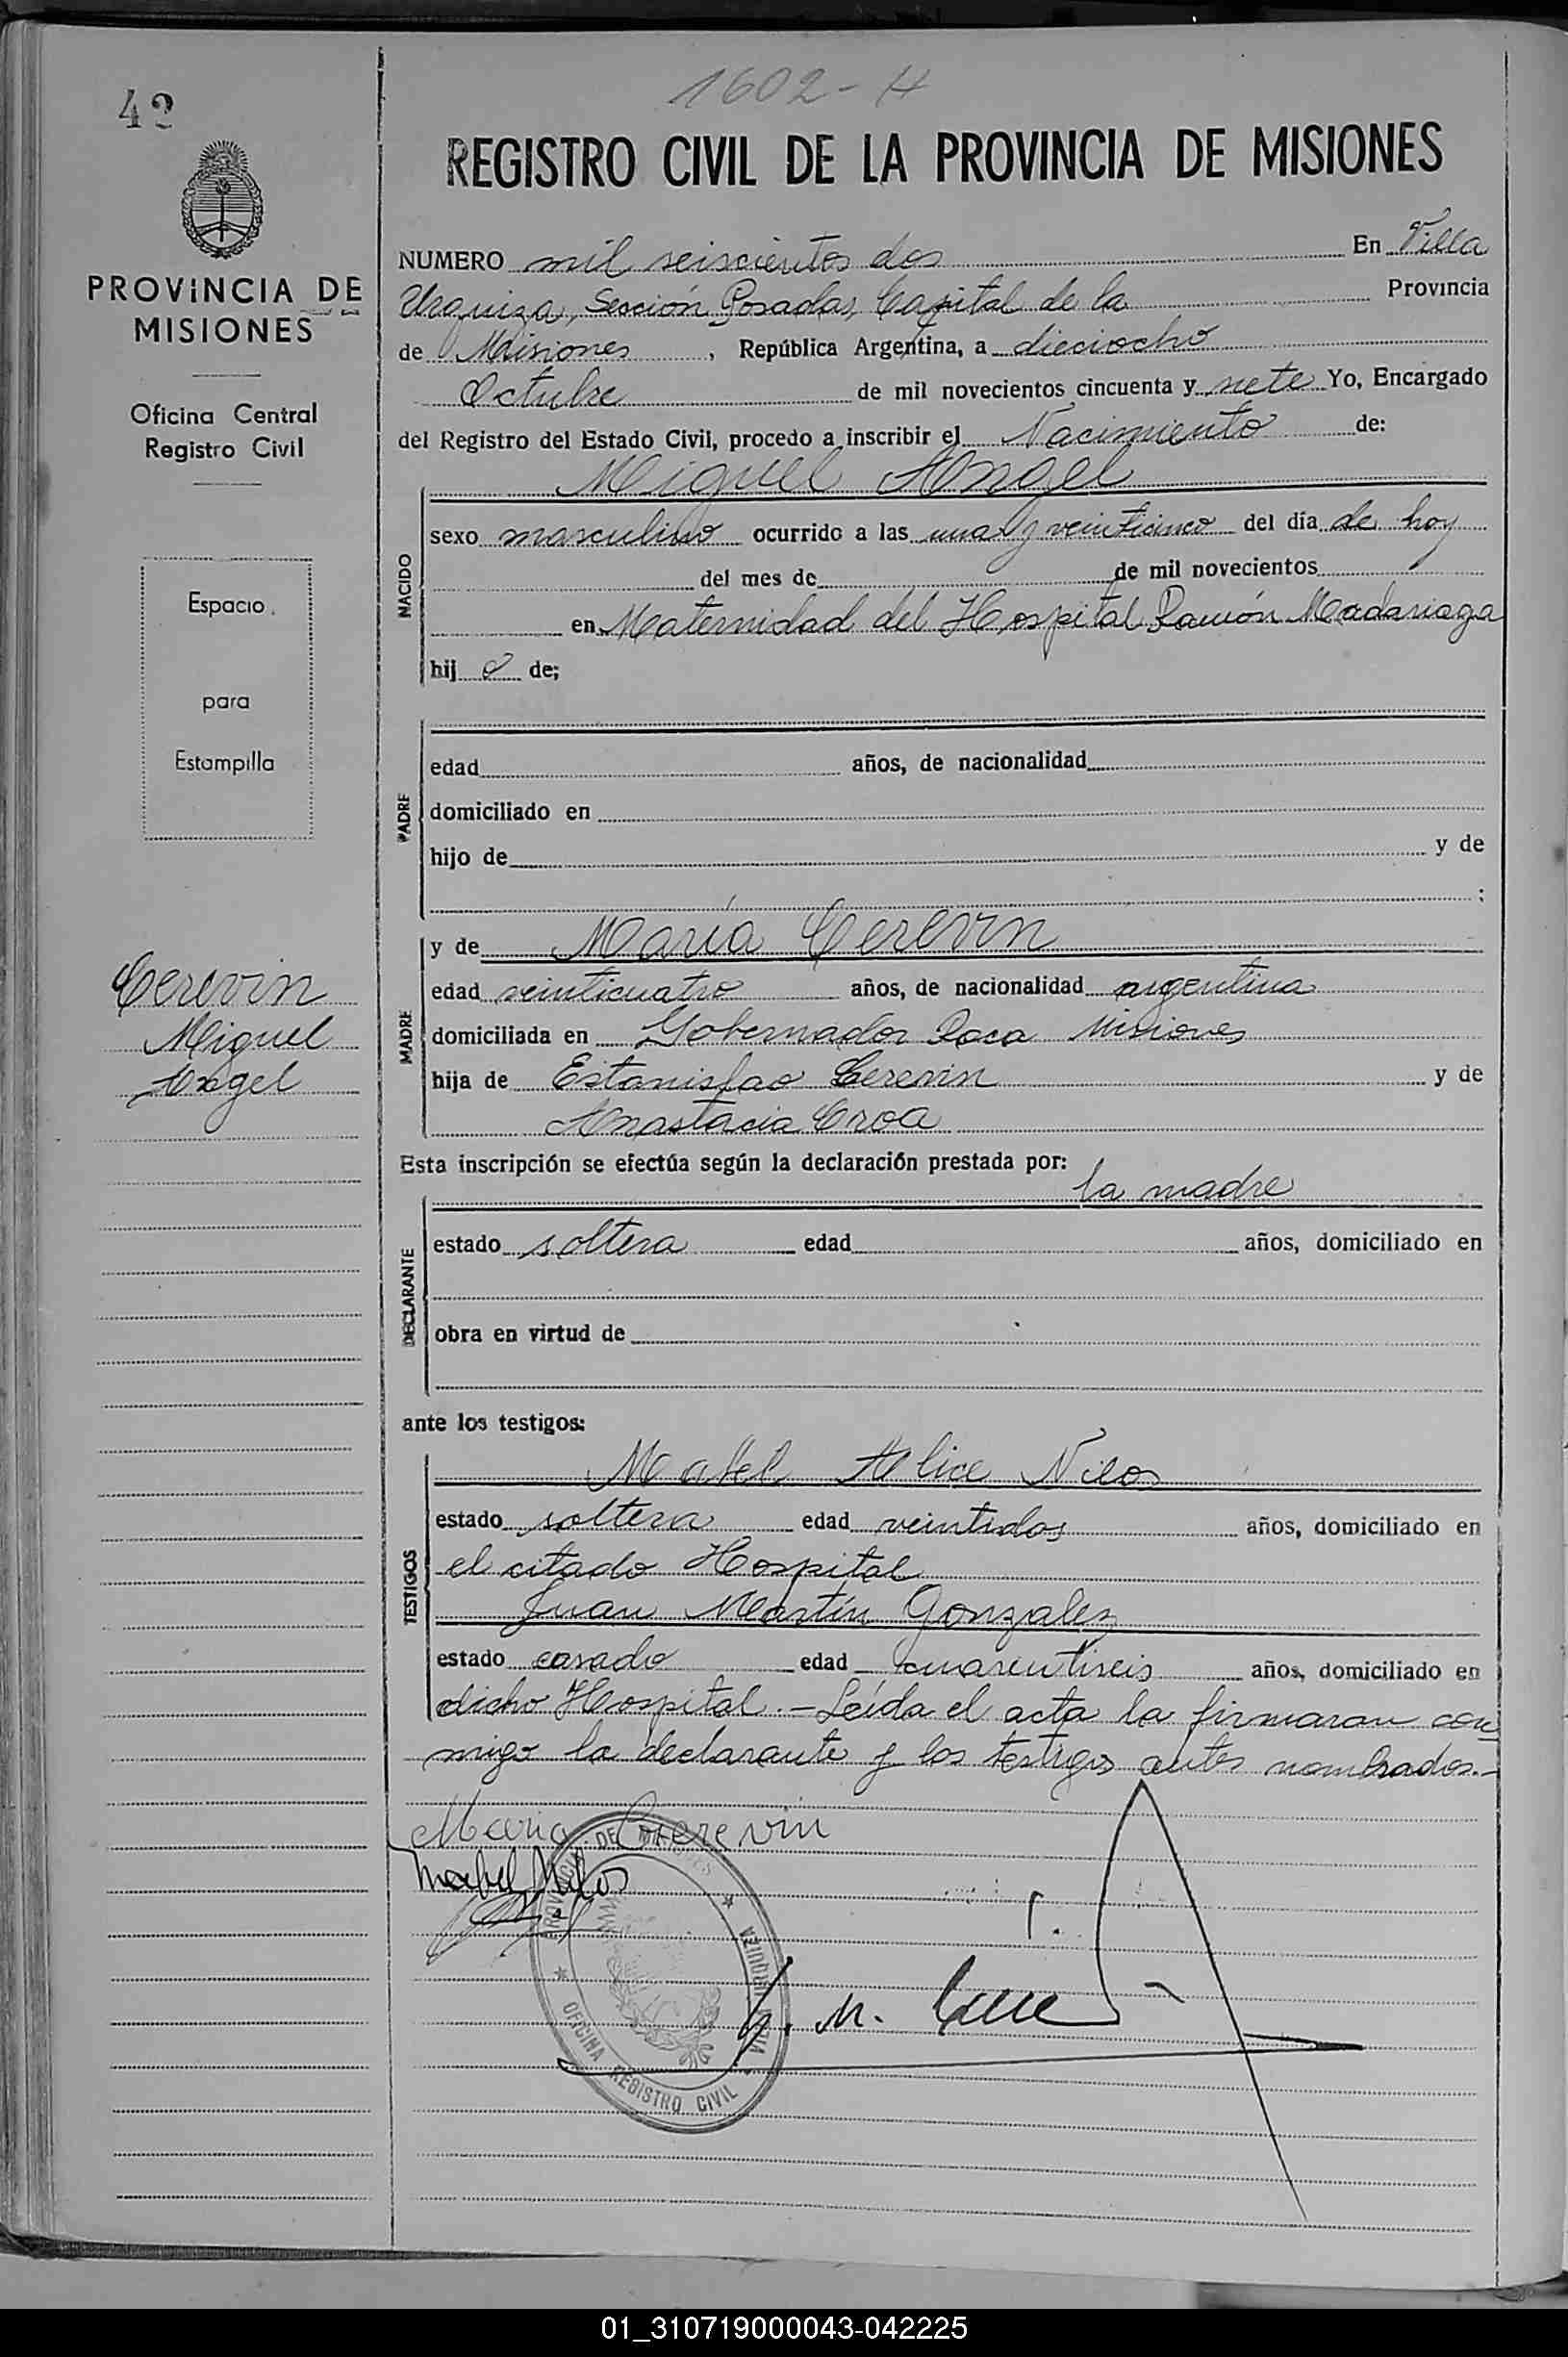 1602-H
42
REGISTRO CIVIL DE LA PROVINCIA DE MISIONES
PROVINCIA DE
MISIONES
Oficina Central
Registro Civil
Espacio
para
Estampilla
Cerevin
Miguel
Angel
NUMERO mil seiscientos dos En Villa
Urquiza, Sección Posadas, Capital de la Provincia
de Misiones, República Argentina, a dieciocho
Octubre de mil novecientos cincuenta y siete Yo, Encargado
del Registro del Estado Civil, procedo a inscribir el Nacimiento de:
Miguel Angel
NACIDO
sexo masculino ocurrido a las una y veinticinco del día de hoy
del mes de de mil novecientos
en Maternidad del Hospital Ramón Madariaga
hij o de;
PADRE
edad años, de nacionalidad
domiciliado en
hijo de y de
;
MADRE
y de María Cerevin
edad veinticuatro años, de nacionalidad argentina
domiciliada en Gobernador Roca Misiones
hija de Estanislao Cerevin y de
Anastacia Croa
Esta inscripción se efectúa según la declaración prestada por:
la madre
DECLARANTE
estado soltera edad años, domiciliado en
obra en virtud de
ante los testigos:
Mabel Alice Nilos
TESTIGOS
estado soltera edad veintidos años, domiciliado en
el citado Hospital
Juan Martín Gonzalez
estado casado edad cuarentiseis años, domiciliado en
dicho Hospital.- Leída el acta la firmaran con
migo la declarante y los testigos antes nombrados.-
Maria Cerevin
Mabel Nilos
PROVINCIA DE MISIONES
VILLA URQUIZA
OFICINA REGISTRO CIVIL
01_310719000043-042225